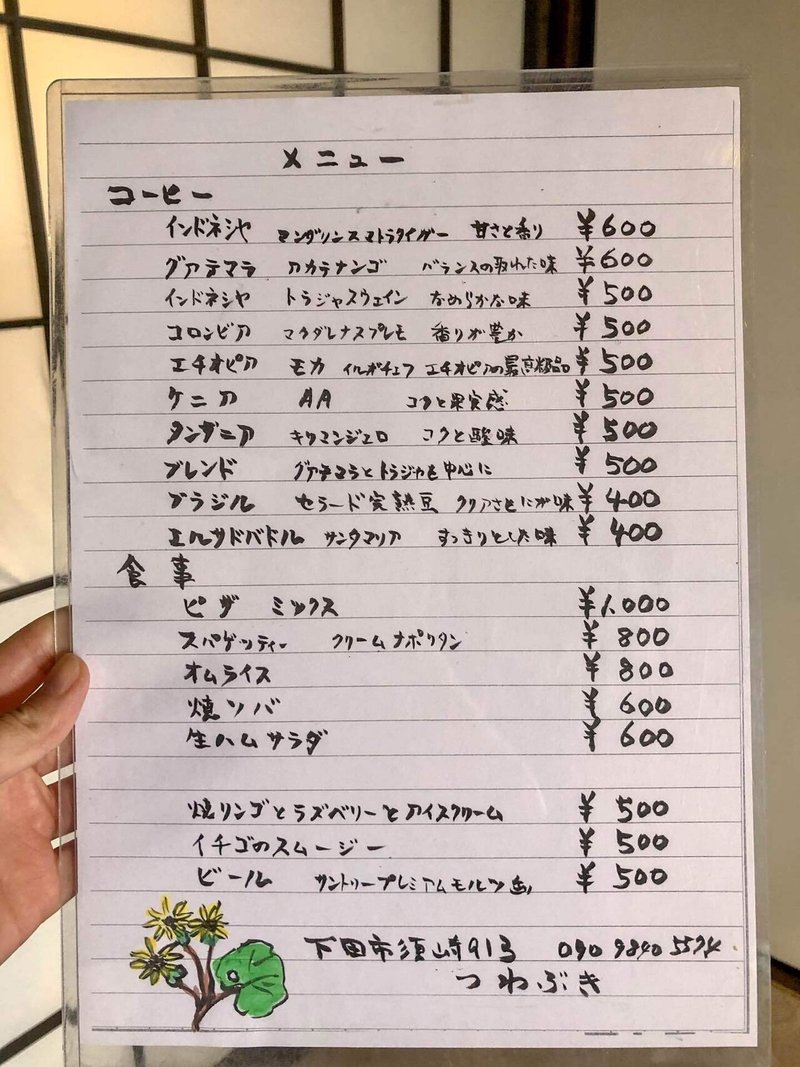 メニュー
コーヒー
インドネシヤ マンダリンスマトラタイガー 甘さと香り ¥600
グアテマラ アカテナンゴ バランスの取れた味 ¥600
インドネシヤ トラジャスウェイン なめらかな味 ¥500
コロンビア マグダレナスプレモ 香りが豊か ¥500
エチオピア モカ イルガチェフ エチオピアの最高級品 ¥500
ケニア AA コクと果実感 ¥500
タンザニア キリマンジェロ コクと酸味 ¥500
ブレンド グアテマラとトラジャを中心に ¥500
ブラジル セラード完熟豆 クリアさとにが味 ¥400
エルサドバドル サンタマリア すっきりとした味 ¥400
食事
ピザ ミックス ¥1,000
スパゲッティー クリームナポリタン ¥800
オムライス ¥800
焼ソバ ¥600
生ハムサラダ ¥600
焼リンゴとラズベリーとアイスクリーム ¥500
イチゴのスムージー ¥500
ビール サントリープレミアムモルツ ¥500
下田市須崎 090 9840
つわぶき